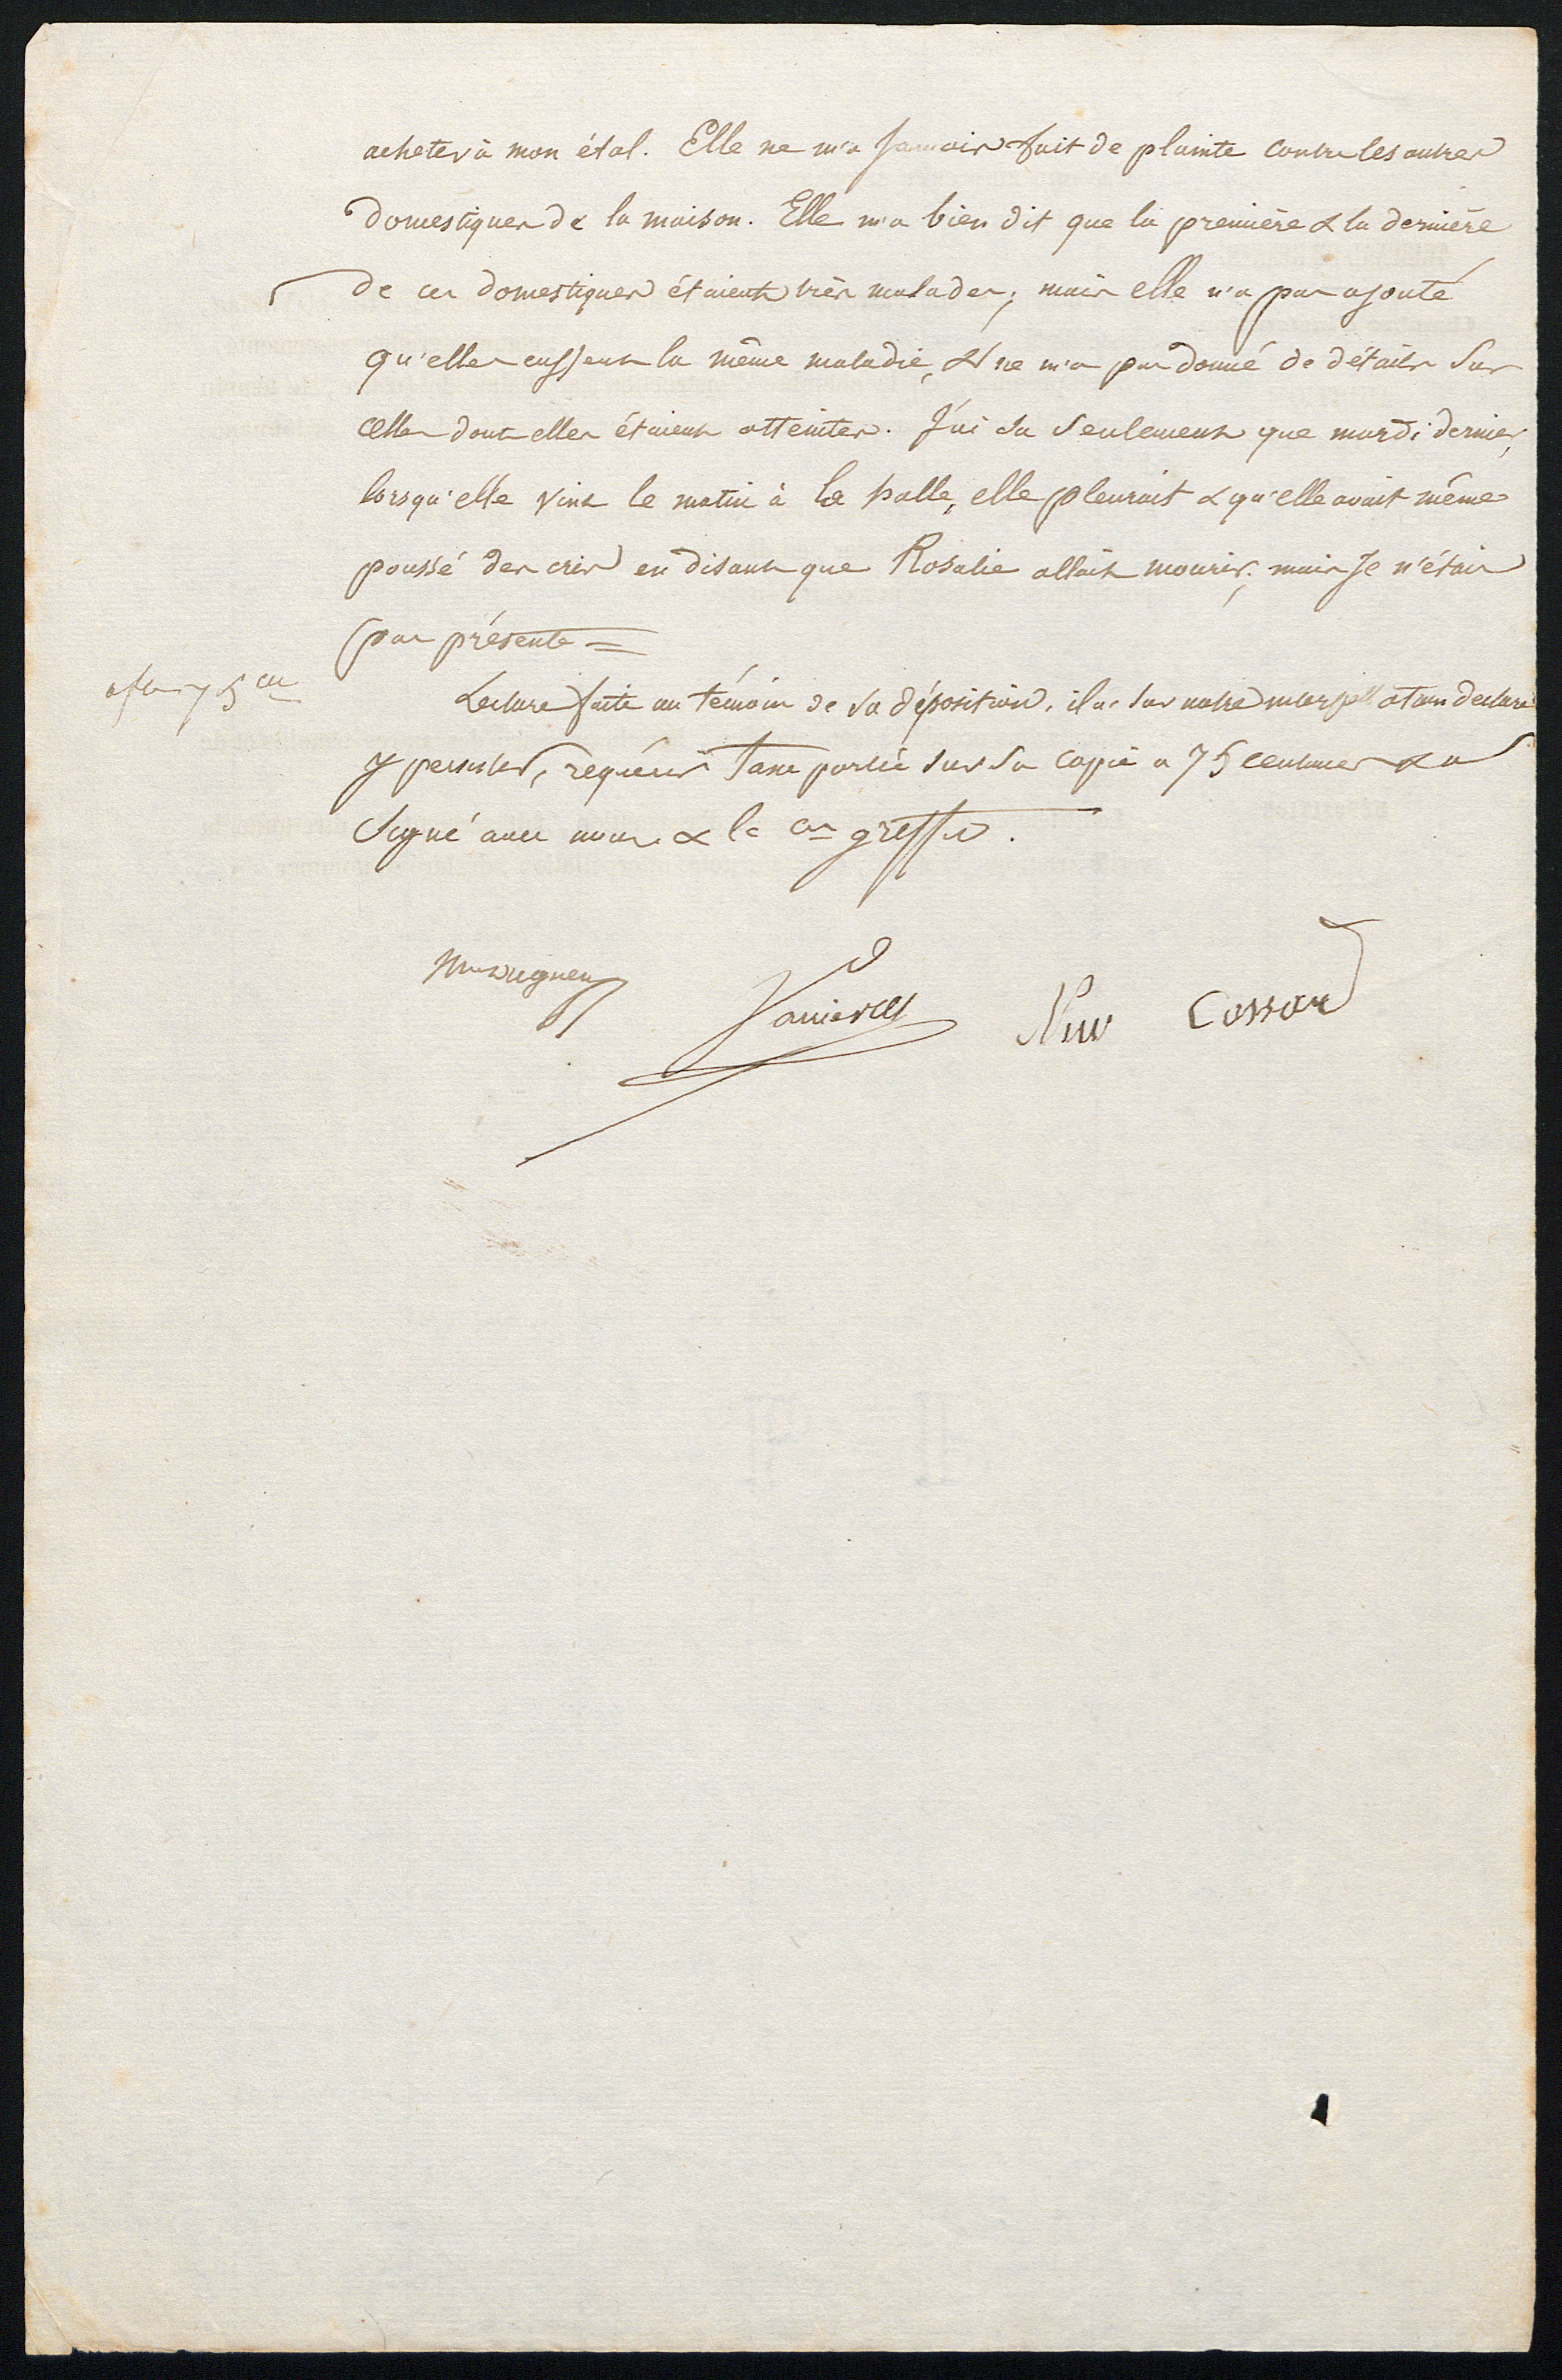 acheter à mon étal. Elle ne m'a jamais fait de plainte contre les autres
domestiques de la maison. Elle m'a bien dit que la première & la dernière
de ces domestiques étaient très malades; mais elle n'a pas ajouté
qu'elles eussent la même maladie, & ne m'a pas donné de détails sur
celles dont elles étaient atteintes. J'ai su seulement que mardi dernier,
lorsqu'elle vint le matin à la halle, elle pleurait & qu'elle avait même
poussé des cris en disant que Rosalie allait mourir; mais je n'étais
pas présente =
75 ce
Lecture faite au témoin de sa déposition, il a sur notre interpellation déclaré
y persister, requérir taxe portée sur sa copie à 75 centimes & a
signé avec nous & le cis greffier.
Vanier
Cossard